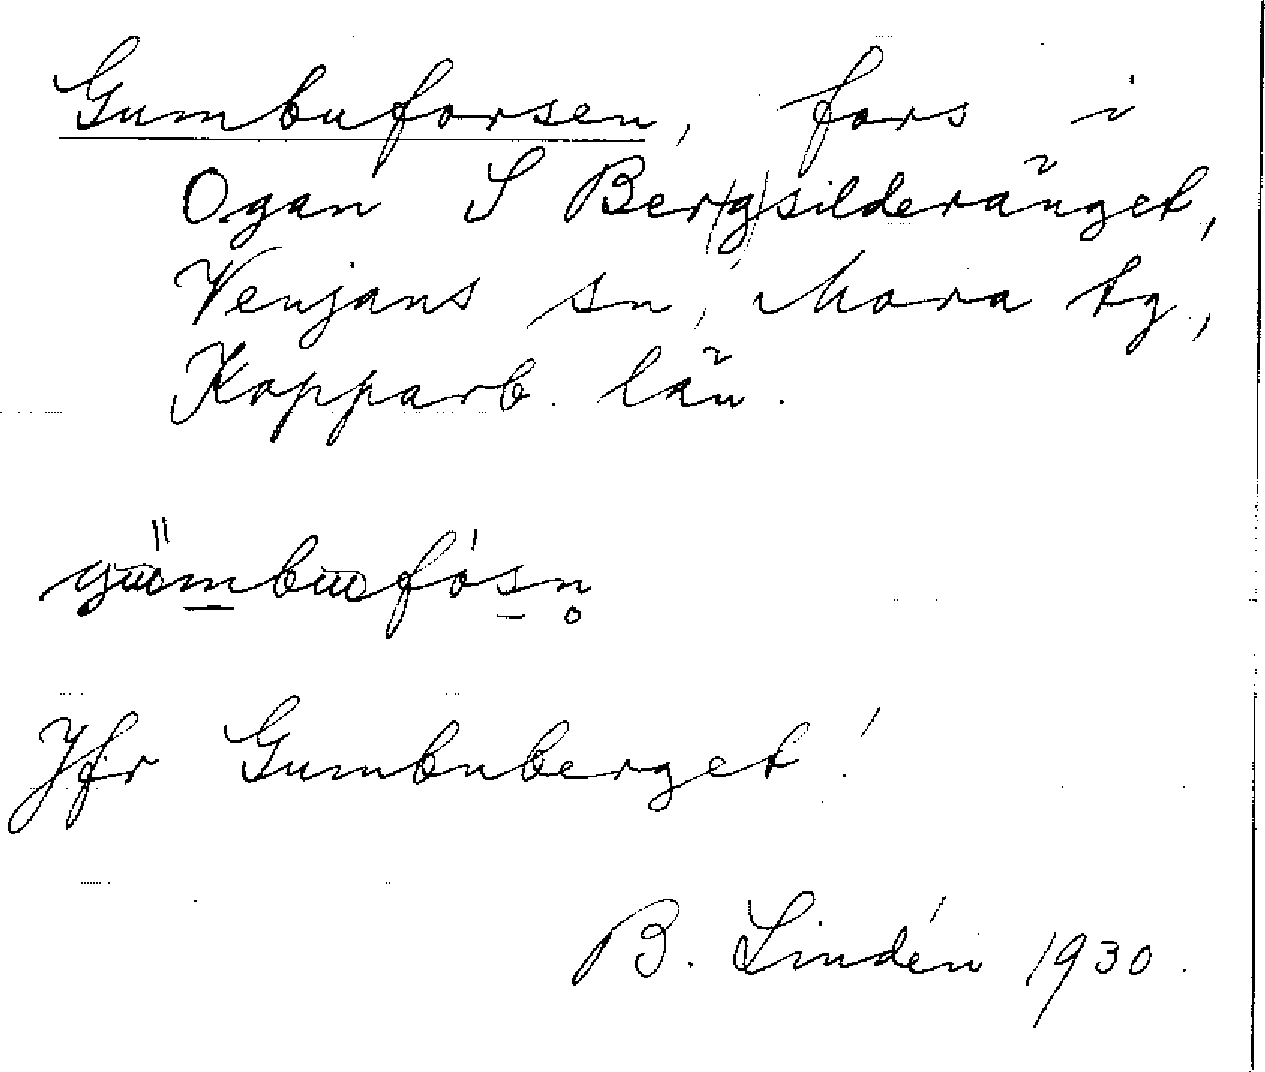 Gumbuforsen, fors i
Ogan S Ber(g)silderänget,
Venjans sn, Mora tg.,
Kopparb. län.
Jfr Gumbuberget!
B. Lindén 1930.